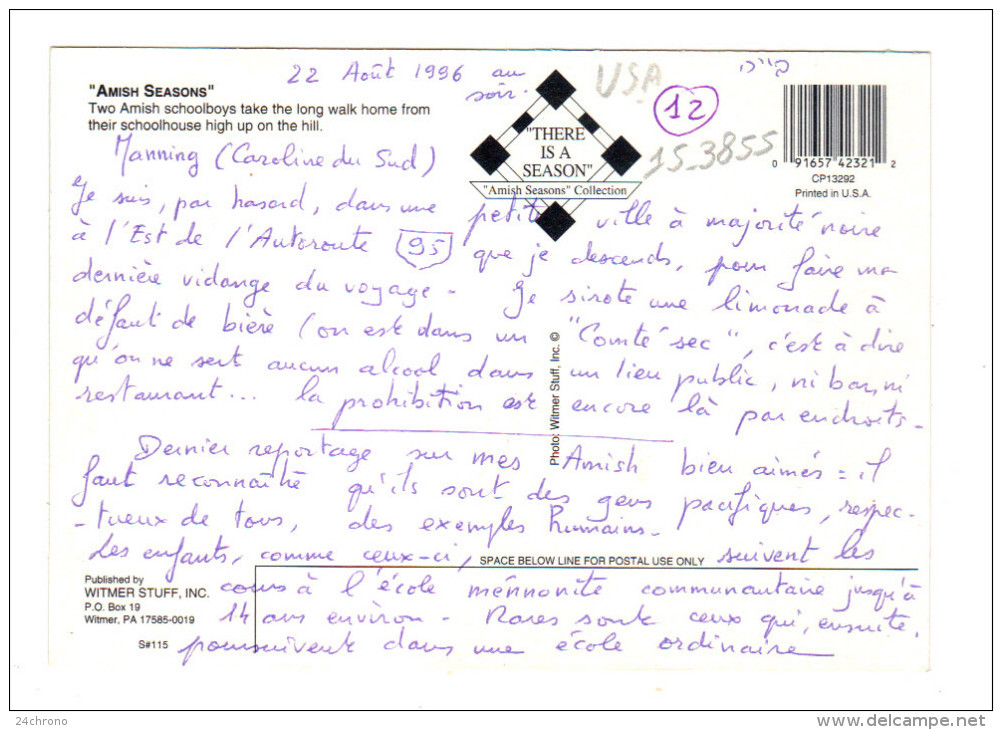 22 Août 1996 au
soir.
USA
12
15.3855
"AMISH SEASONS"
Two Amish schoolboys take the long walk home from
their schoolhouse high up on the hill.
"THERE
IS A
SEASON"
"Amish Seasons" Collection
0 91657 42321 2
CP13292
Printed in U.S.A.
Manning (Caroline du Sud)
Je suis, par hasard, dans une petite ville à majorité noire
à l'Est de l'Autoroute 95 que je descends, pour faire ma
dernière vidange du voyage - Je sirote une limonade à
défaut de bière (on est dans un "Comté sec", c'est à dire
qu'on ne sert aucun alcool dans un lieu public, ni bar, ni
restaurant... la prohibition est encore là par endroits -
Photo: Witmer Stuff, Inc. ©
Dernier reportage sur mes Amish bien aimés = il
faut reconnaître qu'ils sont des gens pacifiques, respec-
-tueux de tous, des exemples humains -
Les enfants, comme ceux-ci, suivent les
SPACE BELOW LINE FOR POSTAL USE ONLY
cours à l'école mennonite communautaire jusqu'à
14 ans environ - Rares sont ceux qui, ensuite,
poursuivent dans une école ordinaire
Published by
WITMER STUFF, INC.
P.O. Box 19
Witmer, PA 17585-0019
S#115
24chrono
delcampe.net